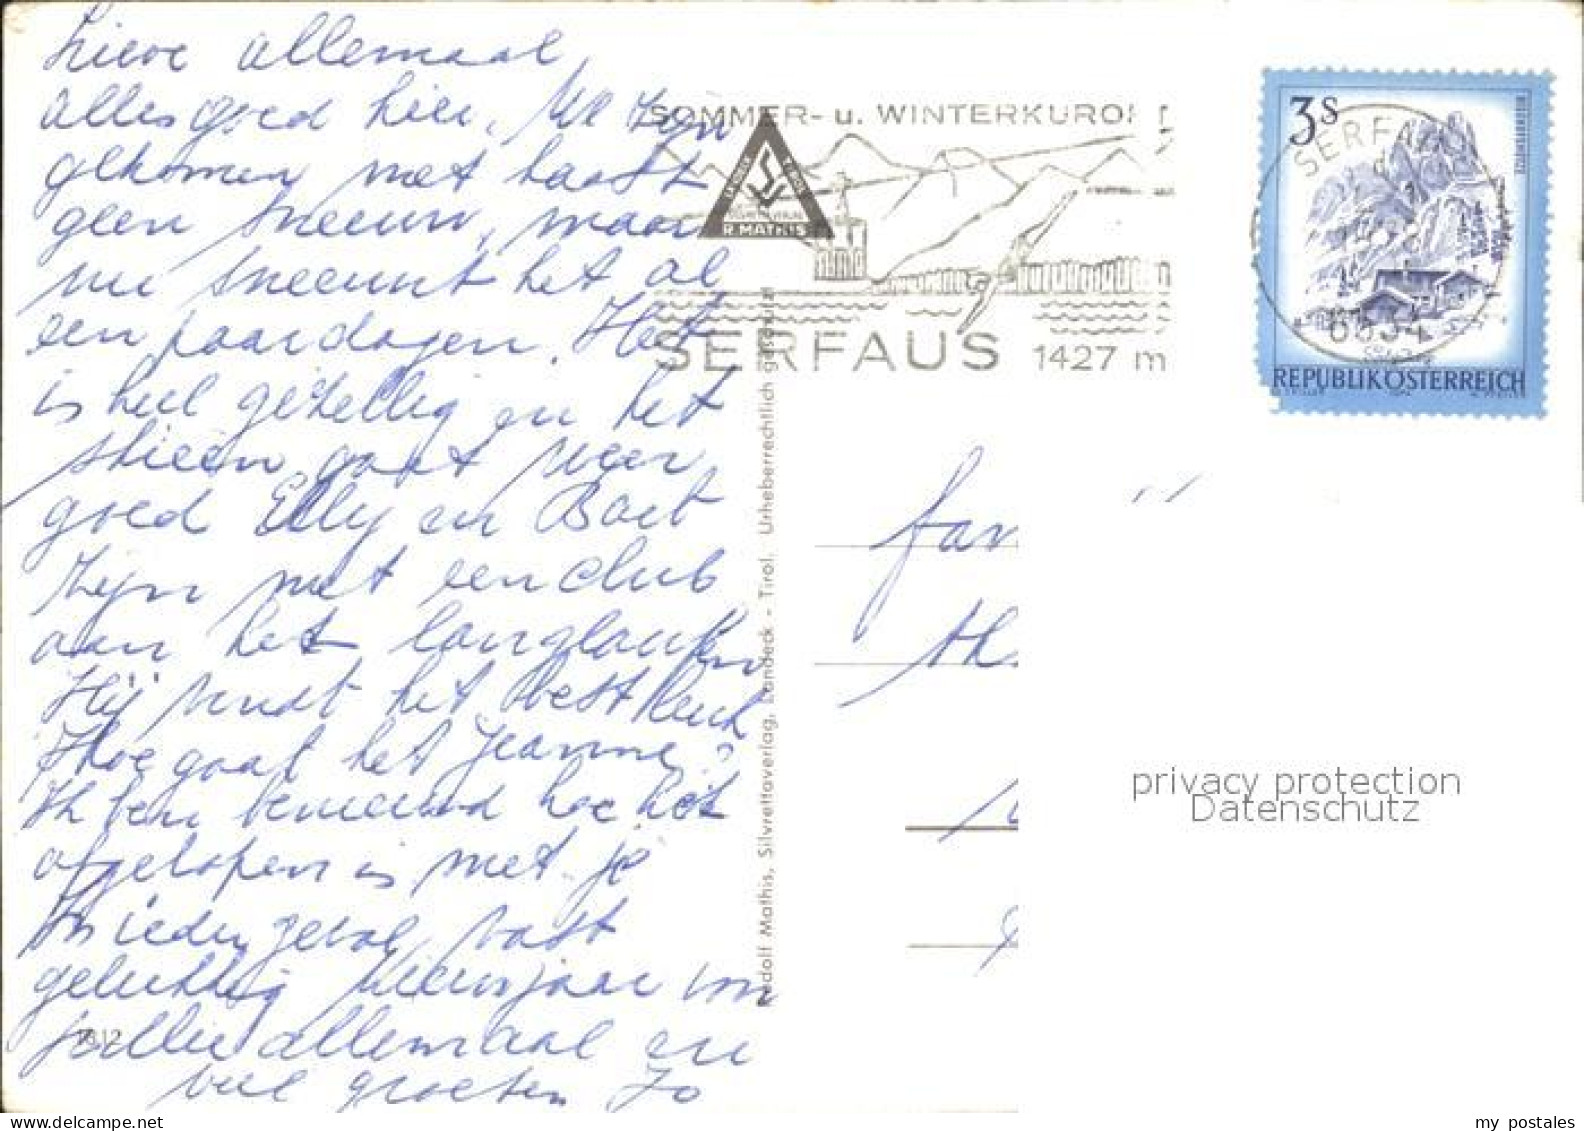 Lieve allemaal,
alles goed hier. We zijn
gekomen met haast
geen sneeuw, maar
nu sneeuwt het al
een paar dagen. Het
is heel gezellig en het
skieën gaat weer
goed Elly en Bart
zijn met een club
aan het langlaufen
Hij vindt het best leuk
Hoe gaat het Jeanne?
Ik ben benieuwd hoe het
afgelopen is met je
In ieder geval vast
gelukkig Nieuwjaar voor
jullie allemaal en
veel groeten Jo
7812
Rudolf Mathis, Silvrettaverlag, Landeck - Tirol. Urheberrechtlich geschützt
SOMMER- u. WINTERKUROR
R. MATHIS
SERFAUS 1427 m
3s
SERFAUS
6534
REPUBLIK ÖSTERREICH
fam
privacy protection
Datenschutz
my postales
www.delcampe.net